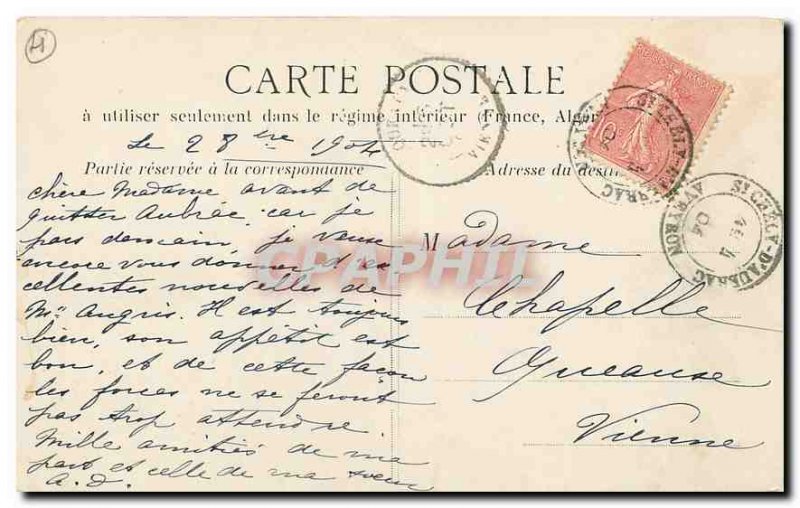 CARTE POSTALE
à utiliser seulement dans le régime intérieur (France, Algér
Le 28 bre 1904
Partie réservée à la correspondance
Adresse du destin
chère Madame avant de
quitter Aubrac car je
pars demain, je veux
encore vous donner d'ex
cellentes nouvelles de
Mr Angris. Il est toujours
bien, son appétit est
bon, et de cette façon
les forces ne se feront
pas trop attendre.
Mille amitiés de ma
part et celle de ma soeur
A.D.
Madame
Chapelle
Queause
Vienne
CPAPHIL
ST CHÉLY-D'AUBRAC
AVEYRON
04